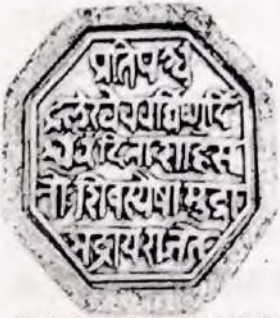 प्रतिपच्चं
द्रलेखेववर्धिष्णुर्वि
श्ववंदिताशाहसू
नोः शिवस्यैषामुद्रा
भद्रायराजते